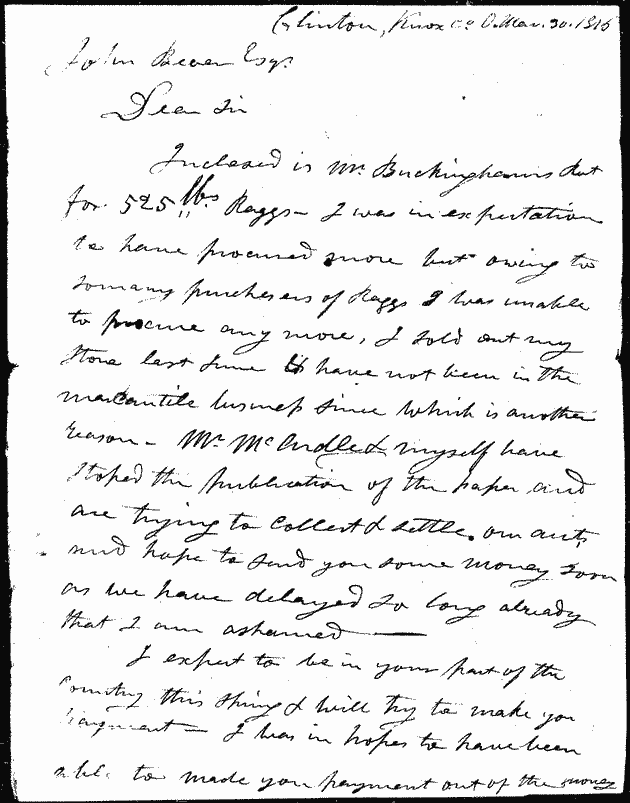 Clinton, Knox Co O. Mar. 30. 1816
John Bever Esqr
Dear Sir
Inclosed is Mr Buckinghams Rct
for 525 lbs Raggs - I was in expectation
to have procured more but owing to
so many purchesers of Raggs I was unable
to procure any more, I sold out my
Store last June & have not been in the
marcantile business since which is another
reason - Mr McArdle & myself have
stoped the publication of the paper and
are trying to collect & settle our accts,
and hope to send you some money soon
as we have delayed so long already
that I am ashamed —
I expect to be in your part of the
Country this spring & will try to make you
payment - I was in hopes to have been
able to made you payment out of the money